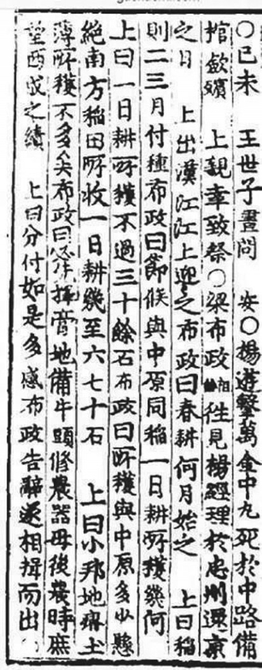 ○己未　王世子晝問　安○楊遊擊萬金中丸死於中路備
棺斂殯　上親幸致祭○梁布政　往見楊經理於忠州還京
之日　上出漢江江上迎之布政曰春耕何月始之　上曰稻
則二三月付種布政曰節候與中原同稻一日耕所穫幾何
上曰一日耕所穫不過三十餘石布政曰所穫與中原多少懸
絕南方稻田所收一日耕幾至六七十石　上曰小邦地瘠土
薄所穫不多矣布政曰　擇膏地備牛頭修農器毋後農時庶
望西成之績　上曰分付如是多感布政告辭遂相揖而出○